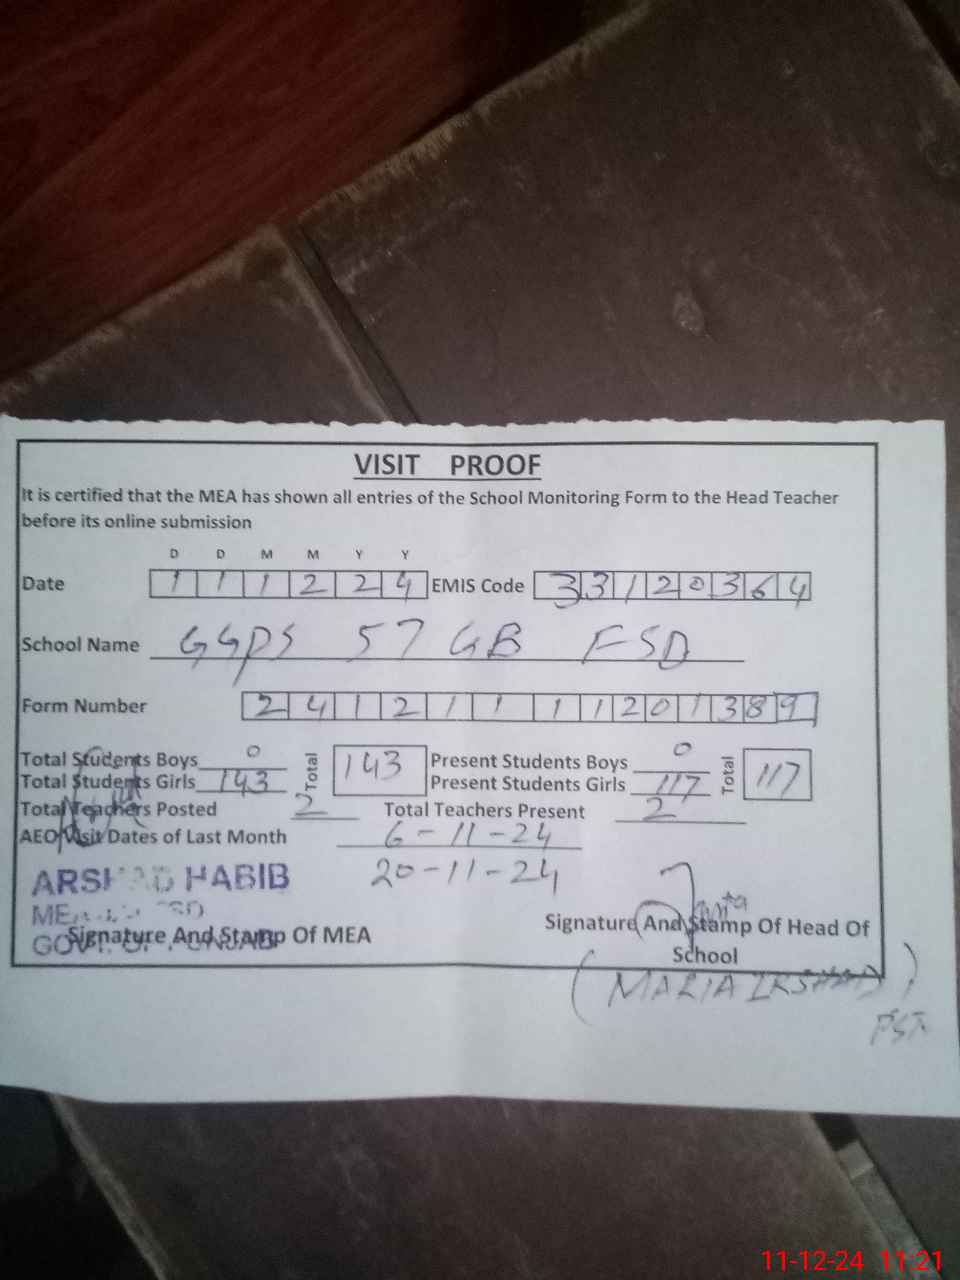 VISIT PROOF
It is certified that the MEA has shown all entries of the School Monitoring Form to the Head Teacher
before its online submission
D D M M Y Y
Date 1 1 1 2 2 4 EMIS Code 3 3 1 2 0 3 6 4
School Name GGPS 57 GB FSD
Form Number 2 4 1 2 1 1 1 1 2 0 1 3 8 9
Total Students Boys 0 Total 143 Present Students Boys 0 Total 117
Total Students Girls 143 Present Students Girls 117
Total Teachers Posted 2 Total Teachers Present 2
AEO Visit Dates of Last Month 6-11-24
20-11-24
ARSHAD HABIB
MEA FSD
GOVT. OF PUNJAB
Signature And Stamp Of MEA
Signature And Stamp Of Head Of
School
(MARIA IRSHAD)
PST
11-12-24 11:21